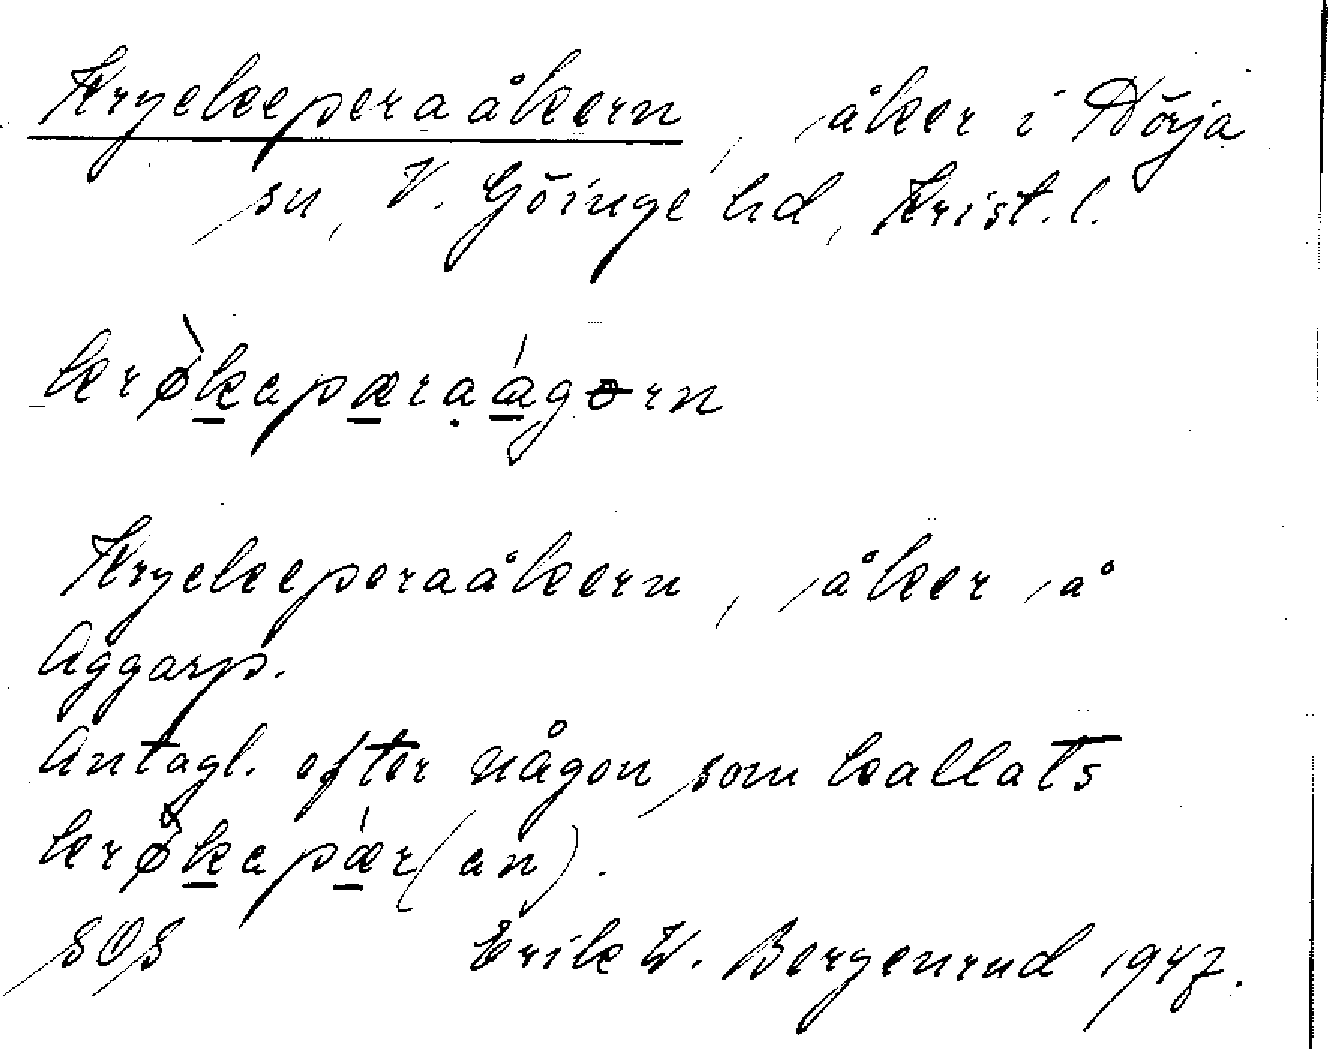 Kryckeperaåkern, åker i Nörja
sn, V. Göinge hd, Krist. l.
krø̀kapæraágərn
Kryckeperaåkern, åker å
Aggarp.
Antagl. efter någon som kallats
krø̀kapǽr(an).
SOS Erik W. Bergenrud 1947.